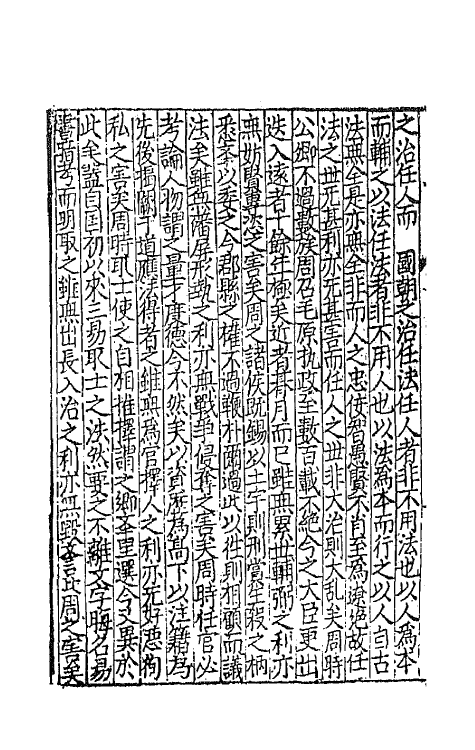 之治任人而　國朝之治任法任人者非不用法也以人為本
而輔之以法任法者非不用人也以法為本而行之以人自古
法無全是亦無全非而人之忠佞智愚賢不肖至為遼絕故任
法之世无甚利亦无甚害而任人之世非大治則大乱矣周時
公卿不過數族周召毛原執政至數百載不絕今之大臣更出
迭入遠者十餘年極矣近者朞月而已雖無累世輔弼之利亦
無妨賢專恣之害矣周之諸侯既錫以土宇則刑賞生殺之柄
悉奉以委之今郡縣之權不過鞭朴爾過此以往則相顧而議
法矣雖無藩屏形勢之利亦無戰爭侵奪之害矣周時任官必
考論人物謂之量才度德今不然矣以資歷為高下以注籍為
先後揭闕于道應格得者之雖無為官擇人之利亦无好惡徇
私之害矣周時取士使之自相推擇謂之鄉舉里選今又異於
此矣蓋自国初以來三易取士之法然要之不離文字晦名易
書暗考而明取之雖無出長入治之利亦無毀譽比周之害矣